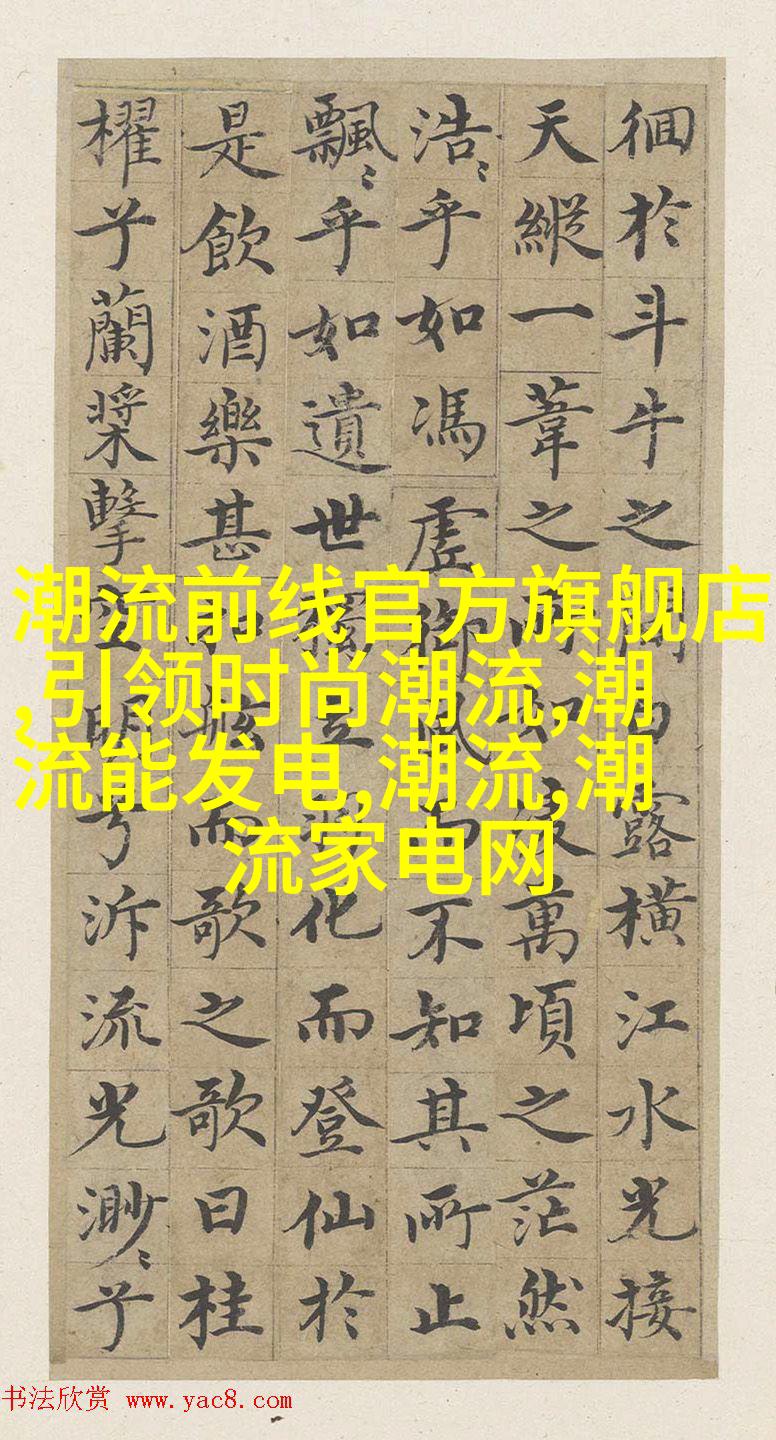 徊於斗牛之間白露橫江水光接
天縱一葦之所如凌萬頃之茫然
浩〻乎如馮虛御風而不知其所止
飄〻乎如遺世獨立羽化而登仙於
是飲酒樂甚扣舷而歌之歌曰桂
櫂兮蘭槳擊空明兮泝流光渺〻兮
潮流前线官方旗舰店
,引领时尚潮流,潮
流能发电,潮流,潮
流家电网
书法欣赏 www.yac8.com